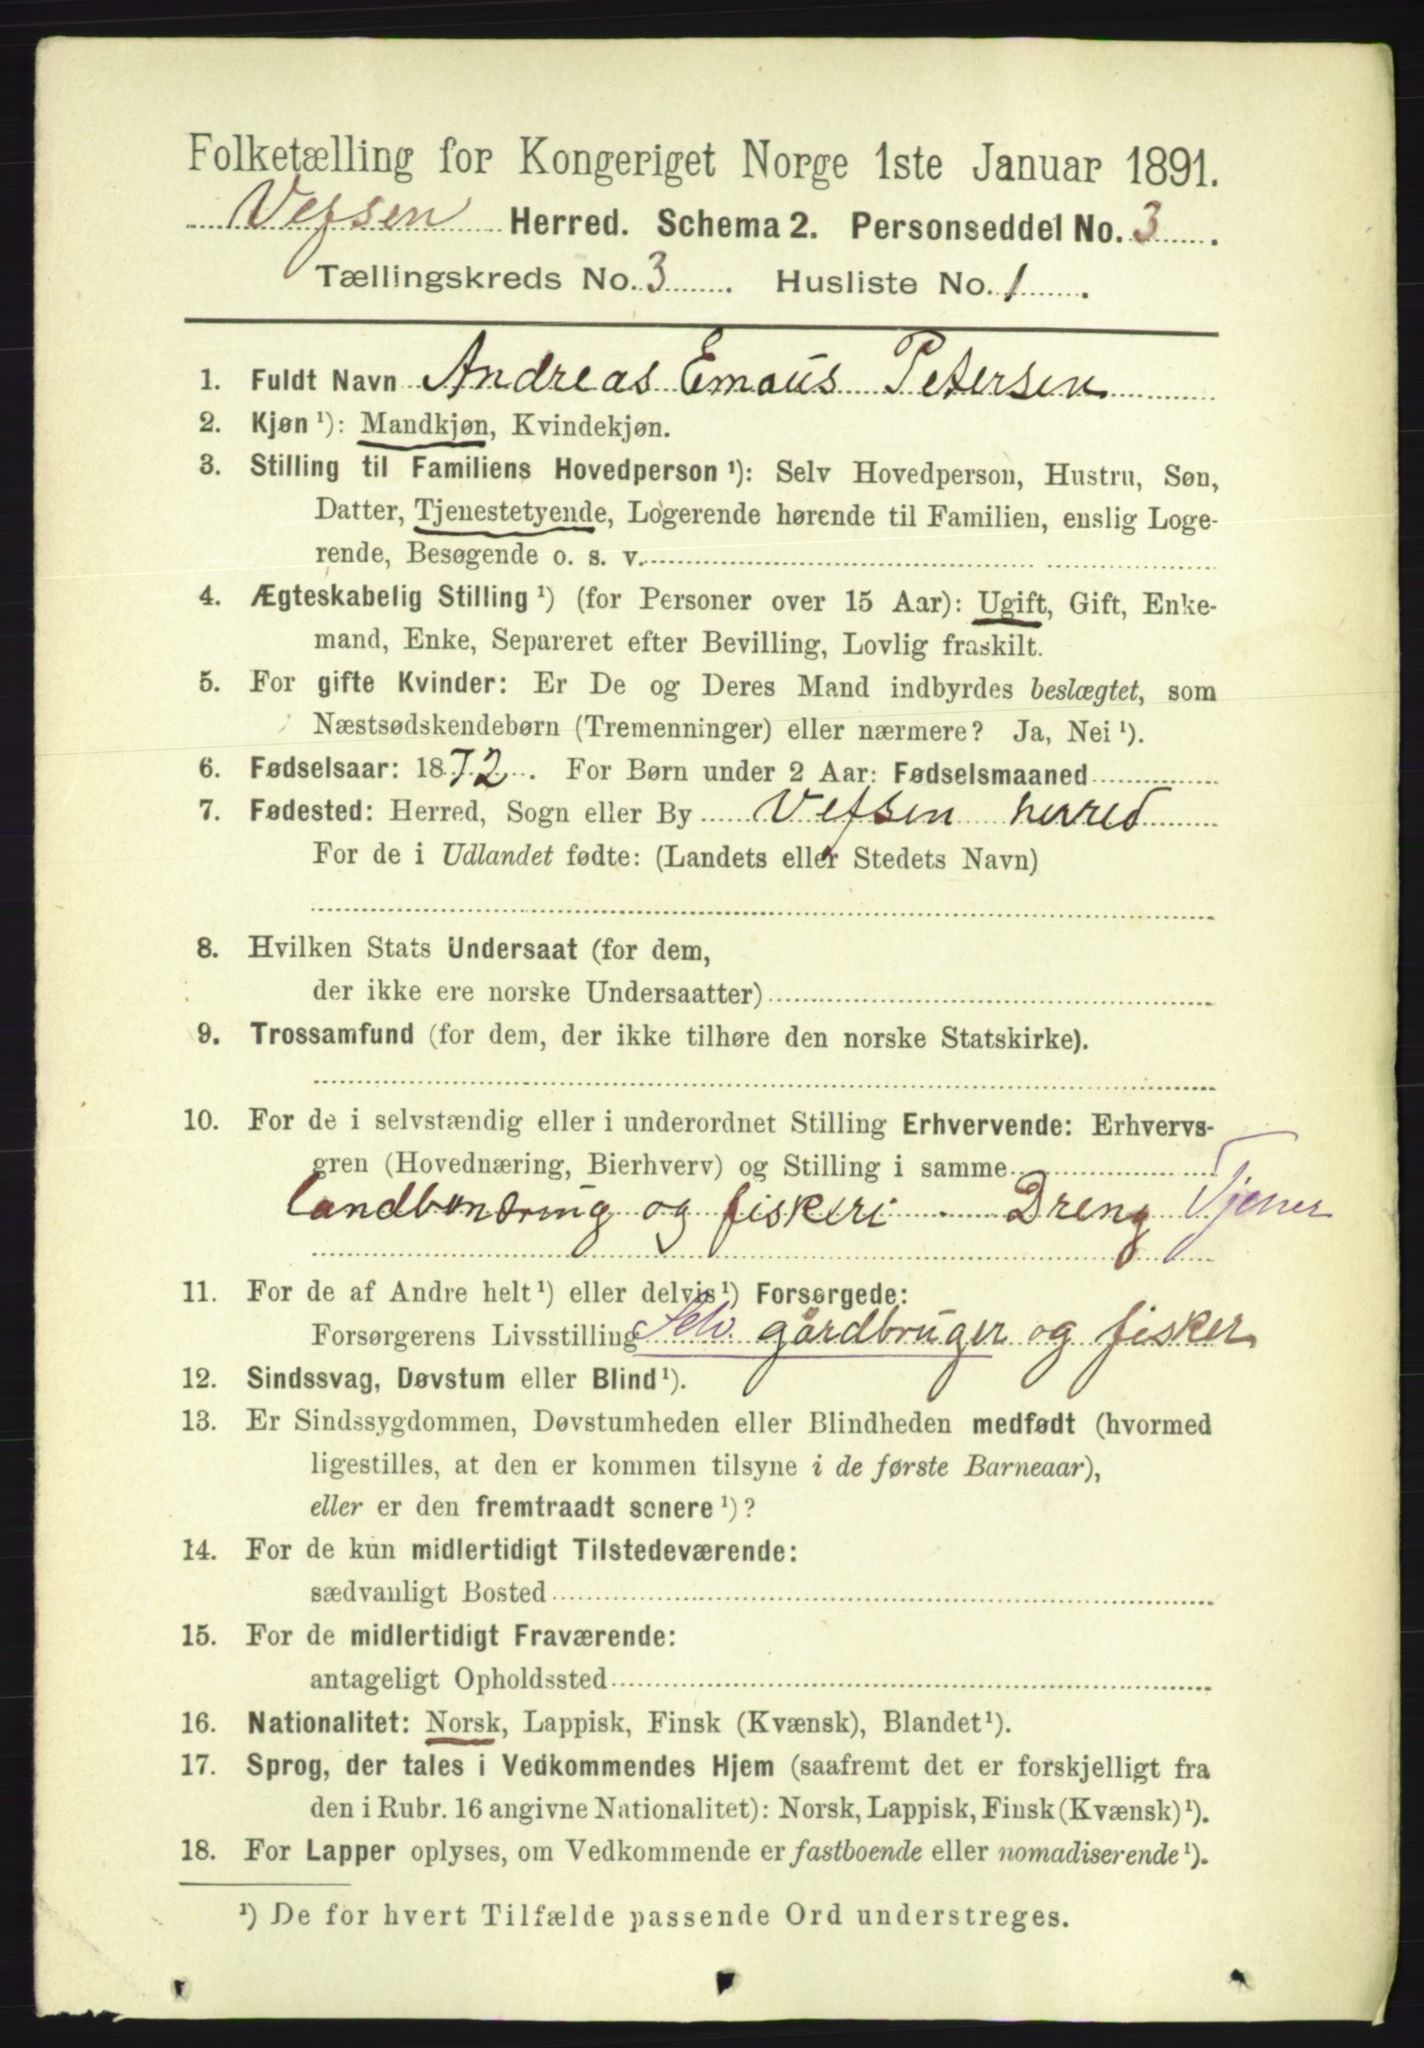 Folketælling for Kongeriget Norge 1ste Januar 1891.
Vefsen Herred. Schema 2. Personseddel No. 3.
Tællingskreds No. 3. Husliste No. 1.
1. Fuldt Navn Andreas Emaus Petersen
2. Kjøn ¹): Mandkjøn, Kvindekjøn.
3. Stilling til Familiens Hovedperson ¹): Selv Hovedperson, Hustru, Søn,
Datter, Tjenestetyende, Logerende hørende til Familien, enslig Loge-
rende, Besøgende o. s. v.
4. Ægteskabelig Stilling ¹) (for Personer over 15 Aar): Ugift, Gift, Enke-
mand, Enke, Separeret efter Bevilling, Lovlig fraskilt.
5. For gifte Kvinder: Er De og Deres Mand indbyrdes beslægtet, som
Næstsødskendebørn (Tremenninger) eller nærmere? Ja, Nei ¹).
6. Fødselsaar: 1872. For Børn under 2 Aar: Fødselsmaaned
7. Fødested: Herred, Sogn eller By Vefsen herred
For de i Udlandet fødte: (Landets eller Stedets Navn)
8. Hvilken Stats Undersaat (for dem,
der ikke ere norske Undersaatter)
9. Trossamfund (for dem, der ikke tilhøre den norske Statskirke).
10. For de i selvstændig eller i underordnet Stilling Erhvervende: Erhvervs-
gren (Hovednæring, Bierhverv) og Stilling i samme
landbonæring og fiskeri - Dreng Tjener
11. For de af Andre helt ¹) eller delvis ¹) Forsørgede:
Forsørgerens Livsstilling Selv. gårdbruger og fisker
12. Sindssvag, Døvstum eller Blind ¹).
13. Er Sindssygdommen, Døvstumheden eller Blindheden medfødt (hvormed
ligestilles, at den er kommen tilsyne i de første Barneaar),
eller er den fremtraadt senere ¹)?
14. For de kun midlertidigt Tilstedeværende:
sædvanligt Bosted
15. For de midlertidigt Fraværende:
antageligt Opholdssted
16. Nationalitet: Norsk, Lappisk, Finsk (Kvænsk), Blandet ¹).
17. Sprog, der tales i Vedkommendes Hjem (saafremt det er forskjelligt fra
den i Rubr. 16 angivne Nationalitet): Norsk, Lappisk, Finsk (Kvænsk) ¹).
18. For Lapper oplyses, om Vedkommende er fastboende eller nomadiserende ¹).
¹) De for hvert Tilfælde passende Ord understreges.